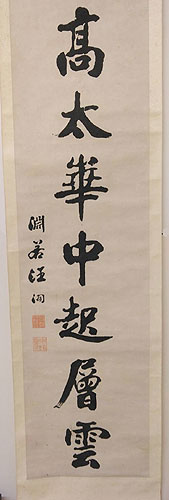 高太華中起層雲
淵若汪洵